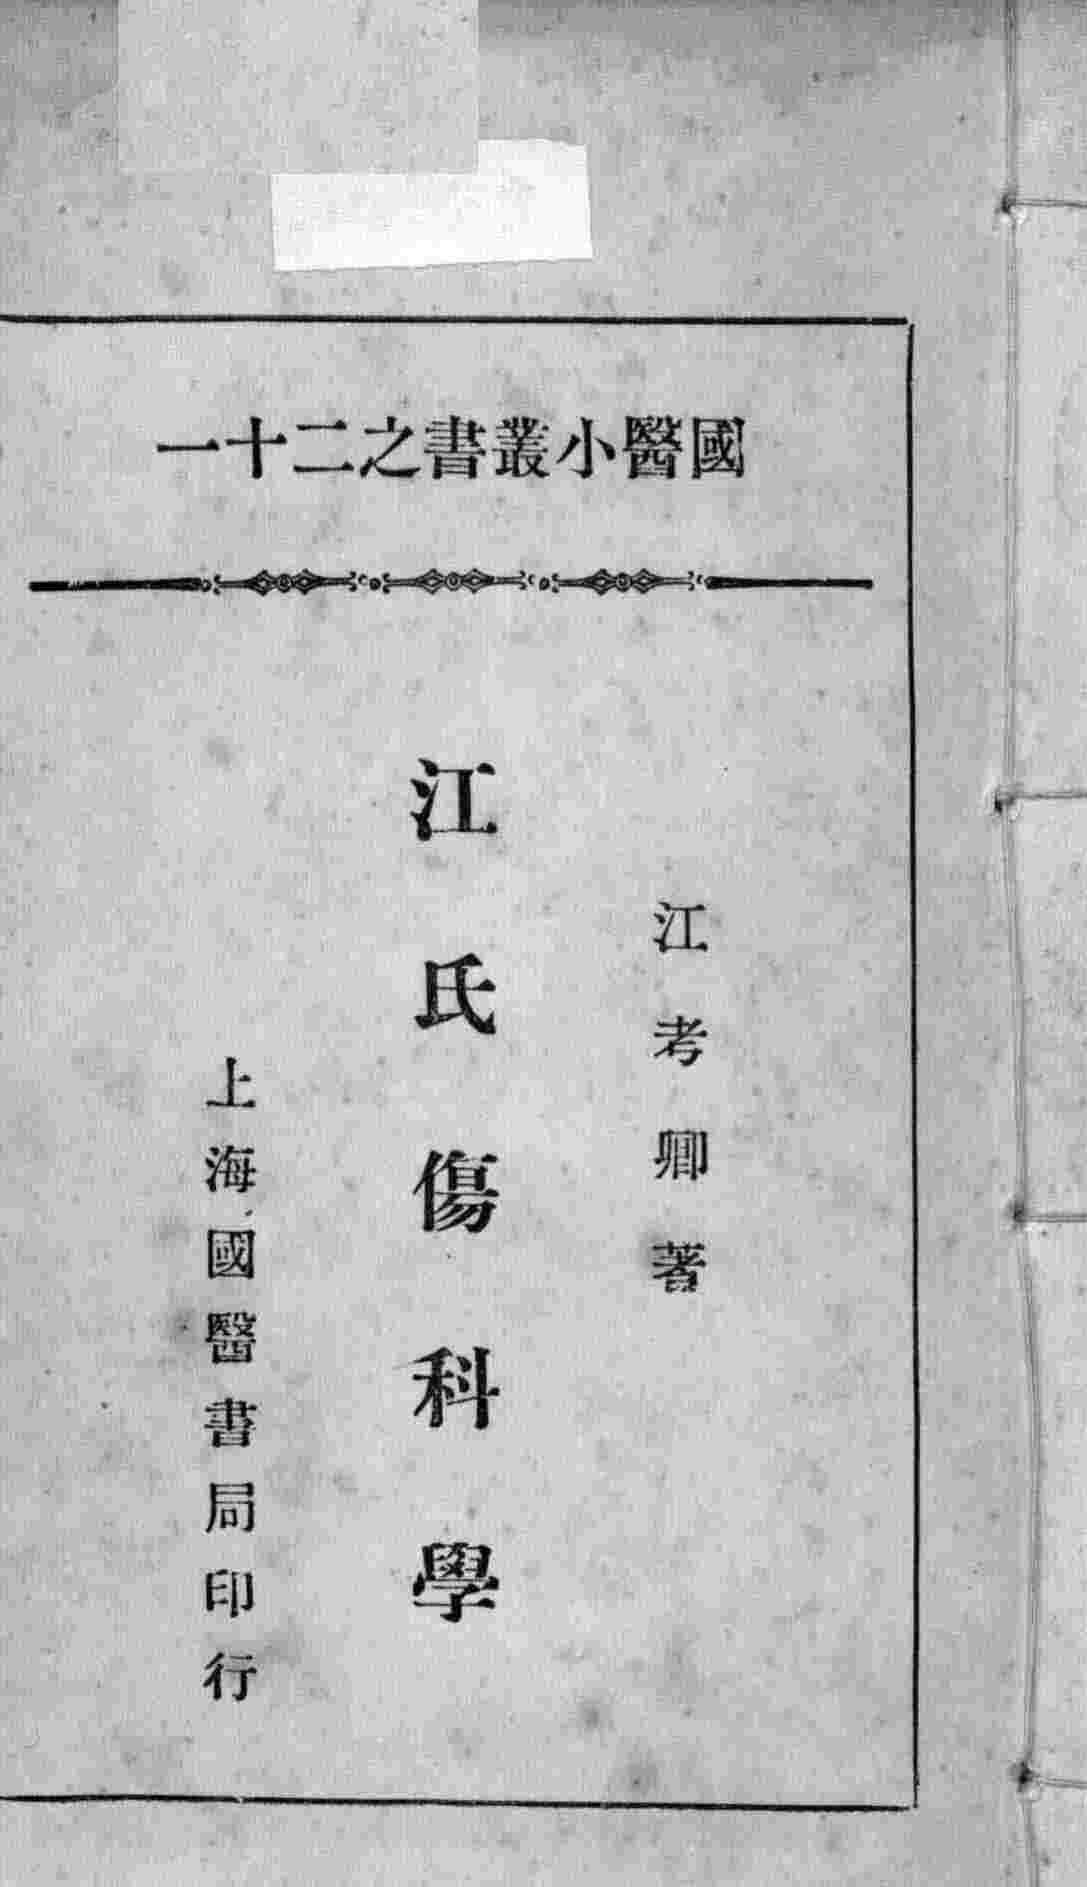 國醫小叢書之二十一
江考卿著
江氏傷科學
上海國醫書局印行